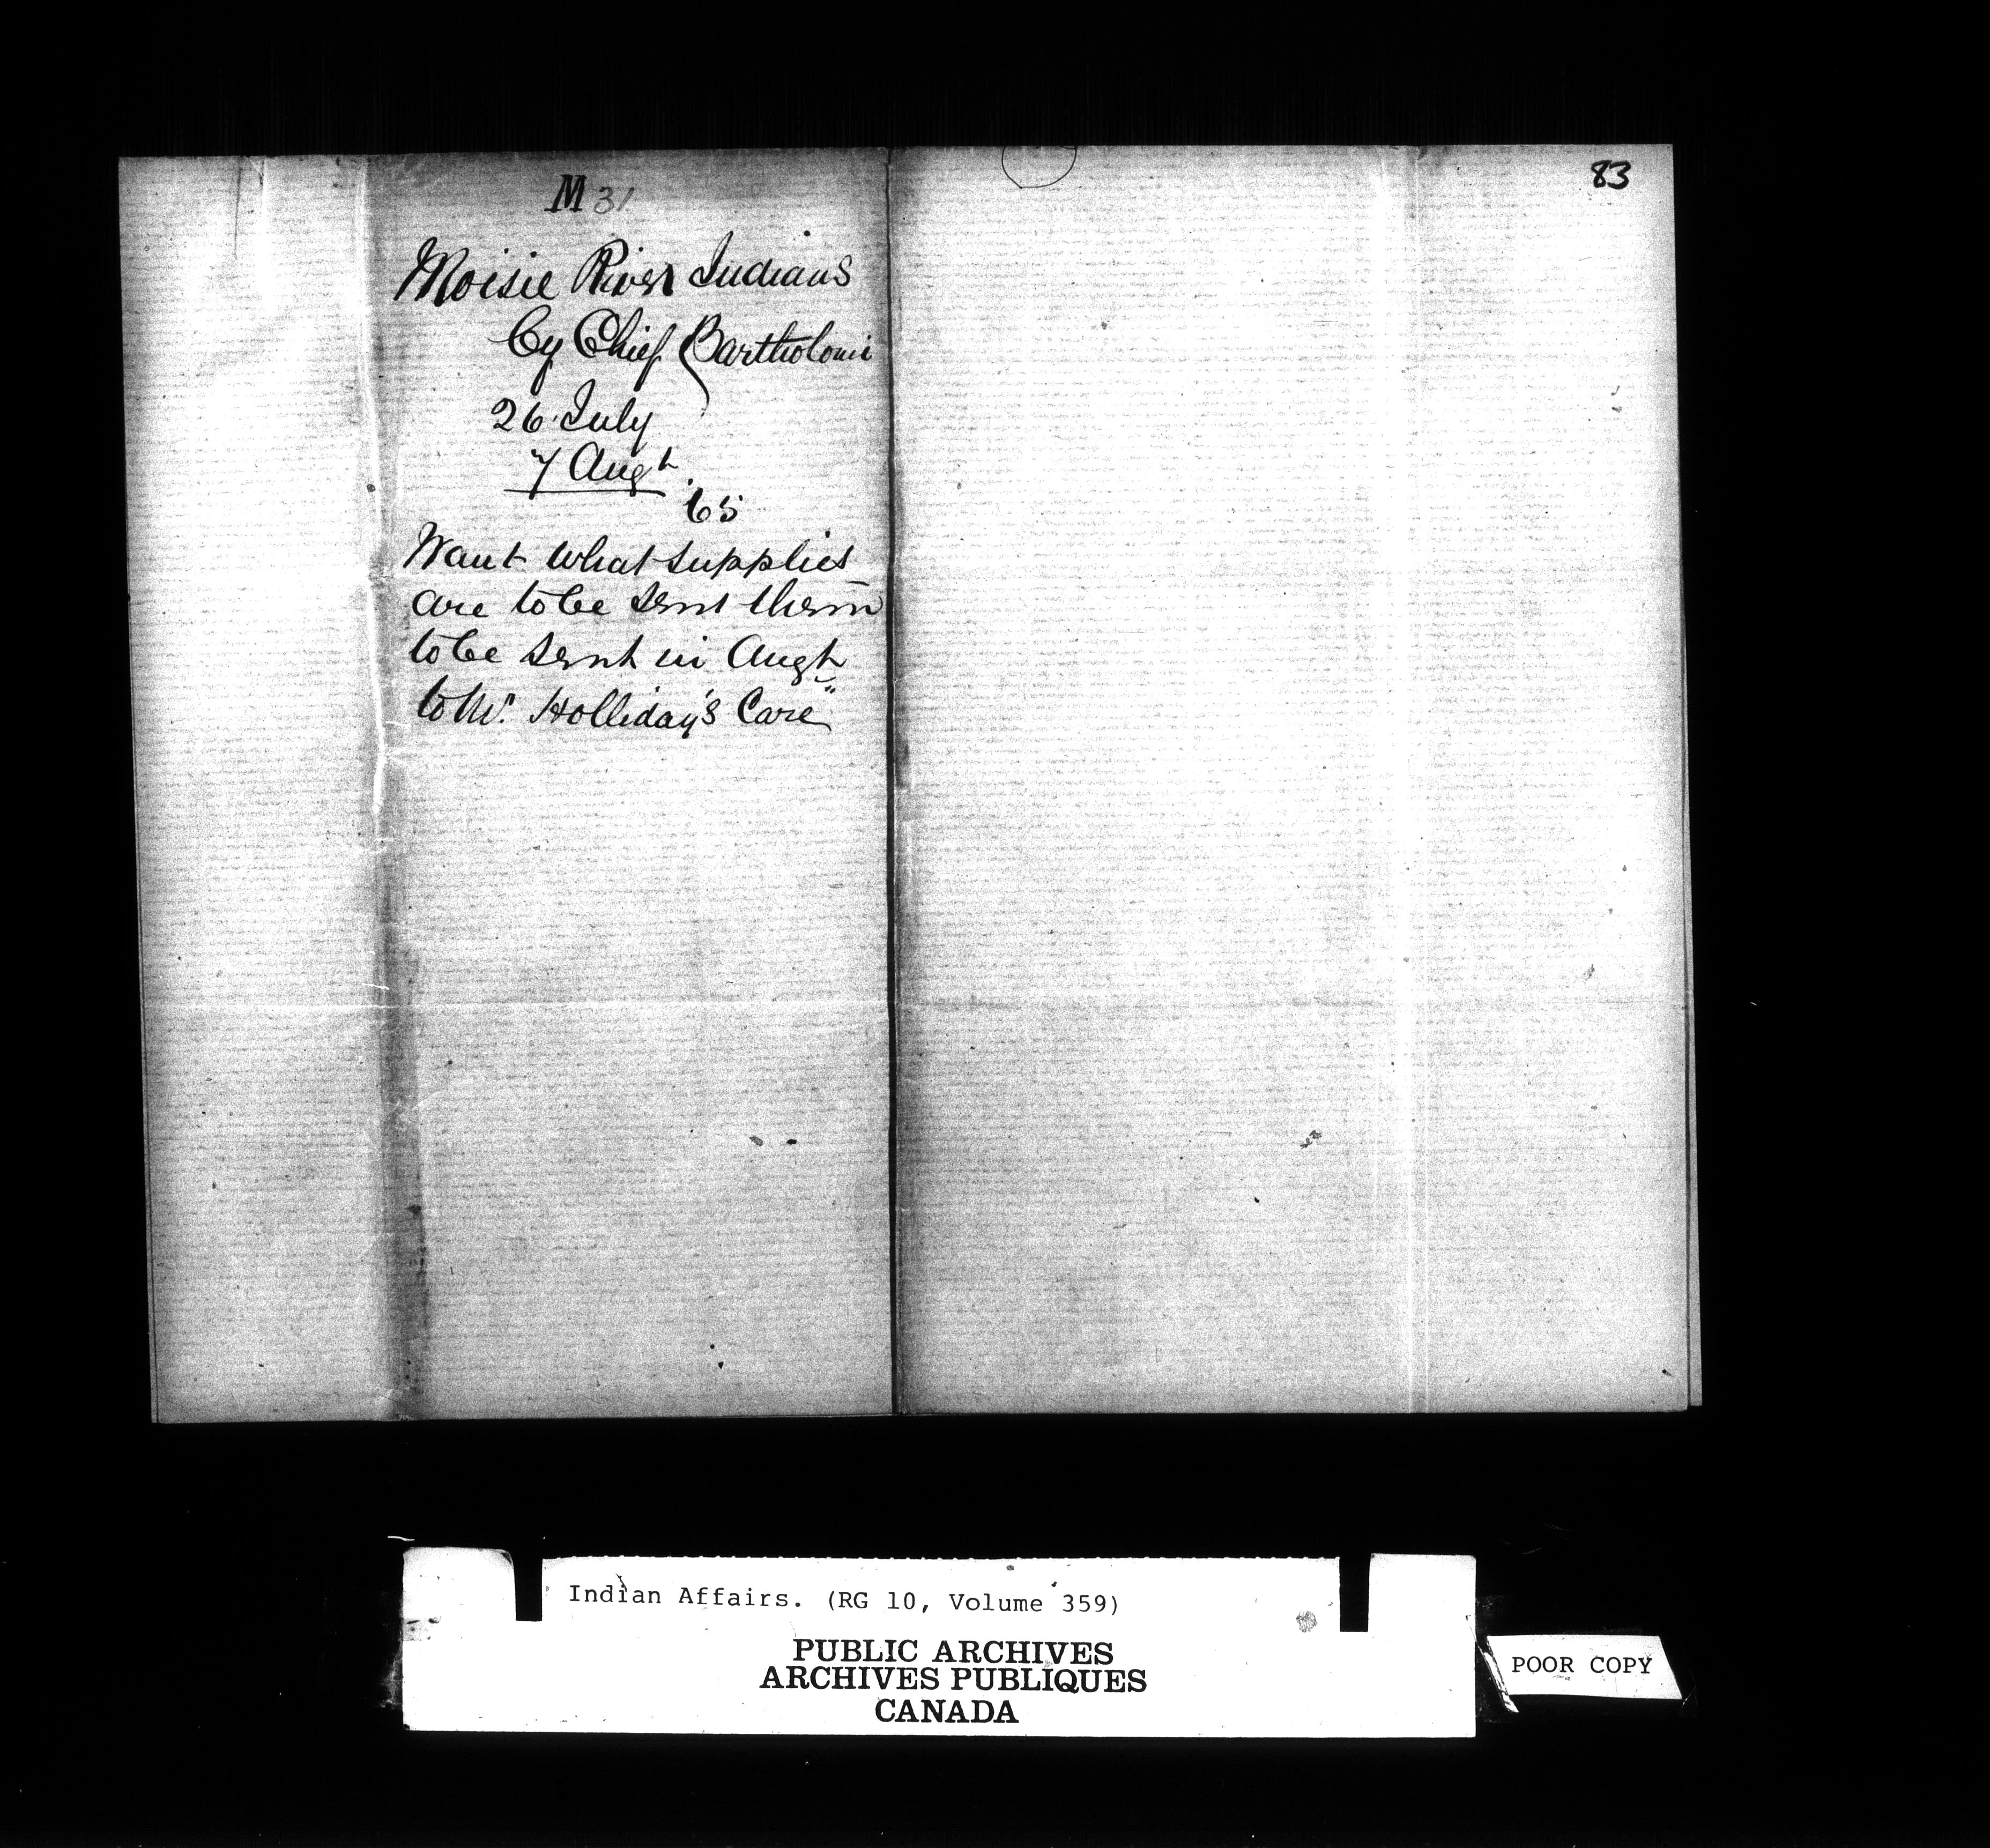 M 31
83
Moisie River Indians
by Chief Bartholomi
26 July
7 Augt.
65
Want what supplies
are to be sent them
to be sent in Augt
to Mr. Holliday's Care
Indian Affairs. (RG 10, Volume 359)
PUBLIC ARCHIVES
ARCHIVES PUBLIQUES
CANADA
POOR COPY